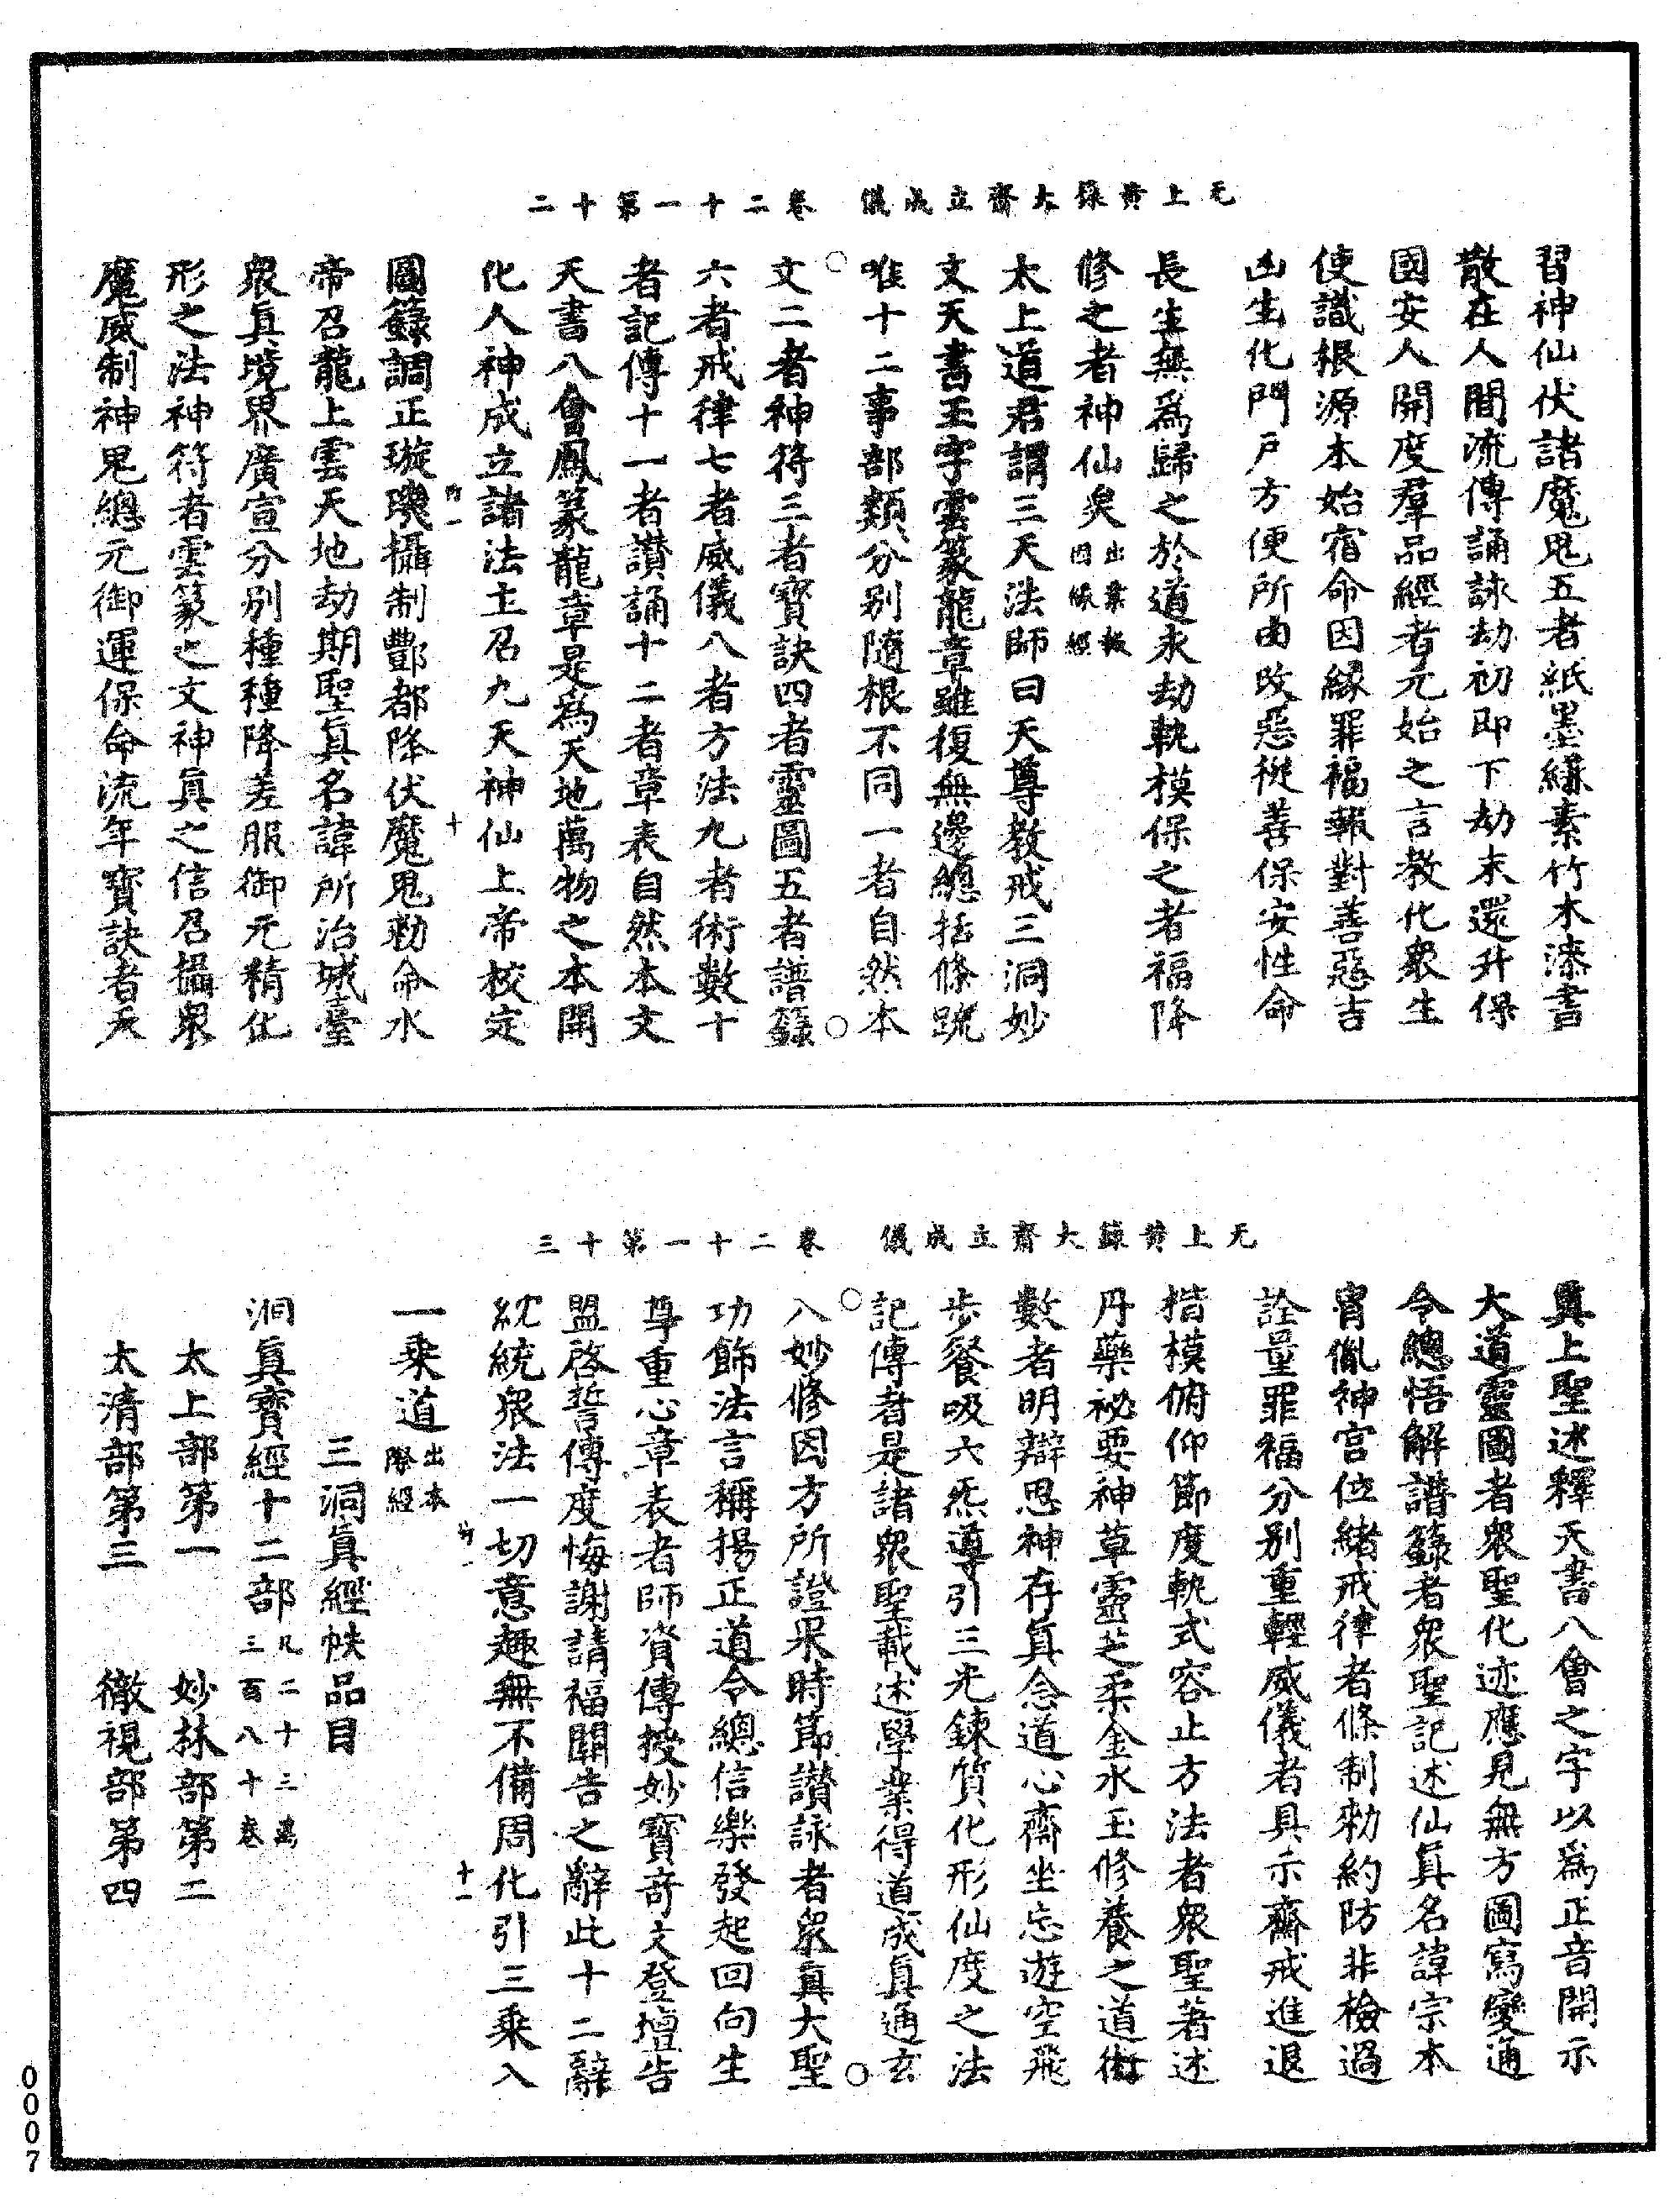 无上黃籙大齋立成儀　卷二十一第十二
習神仙伏諸魔鬼五者紙墨縑素竹木漆書
散在人間流傳誦詠劫初即下劫末還升保
國安人開度羣品經者元始之言教化衆生
使識根源本始宿命因緣罪福報對善惡吉
凶生化門戶方便所由改惡從善保安性命
長生無爲歸之於道永劫軌模保之者福降
修之者神仙矣出業報因緣經
太上道君謂三天法師曰天尊教戒三洞妙
文天書玉字雲篆龍章雖復無邊總括條䟽
唯十二事部類分别隨根不同一者自然本
文二者神符三者寶訣四者靈圖五者譜籙
六者戒律七者威儀八者方法九者術數十
者記傳十一者讃誦十二者章表自然本文
天書八會鳳篆龍章是爲天地萬物之本開
化人神成立諸法主召九天神仙上帝校定
圖籙調正璇璣攝制酆都降伏魔鬼勑命水
帝召龍上雲天地劫期聖真名諱所治城臺
衆真境界廣宣分別種種降差服御元精化
形之法神符者雲篆之文神真之信召攝衆
魔威制神鬼總元御運保命流年寶訣者天
竹一　十
无上黃籙大齋立成儀　卷二十一第十三
真上聖述釋天書八會之字以爲正音開示
大道靈圖者衆聖化迹應見無方圖寫變通
令總悟解譜籙者衆聖記述仙真名諱宗本
胄胤神宮位緒戒律者條制勑約防非檢過
詮量罪福分别重輕威儀者具示齋戒進退
楷模俯仰節度軌式容止方法者衆聖著述
丹藥祕要神草靈芝柔金水玉修養之道術
數者明辯思神存真念道心齋坐忘遊空飛
步餐吸六炁導引三光鍊質化形仙度之法
記傳者是諸衆聖載述學業得道成真通玄
入妙修因方所證果時節讃詠者衆真大聖
功飾法言稱揚正道令總信樂發起回向生
尊重心章表者師資傳授妙寶奇文登壇告
盟啓誓傳度悔謝請福關告之辭此十二辭
紞統衆法一切意趣無不備周化引三乘入
一乘道出本際經
竹一　十一
三洞真經帙品目
洞真寶經十二部凡二十三萬三百八十卷
太上部第一　妙林部第二
太清部第三　徹視部第四
0007